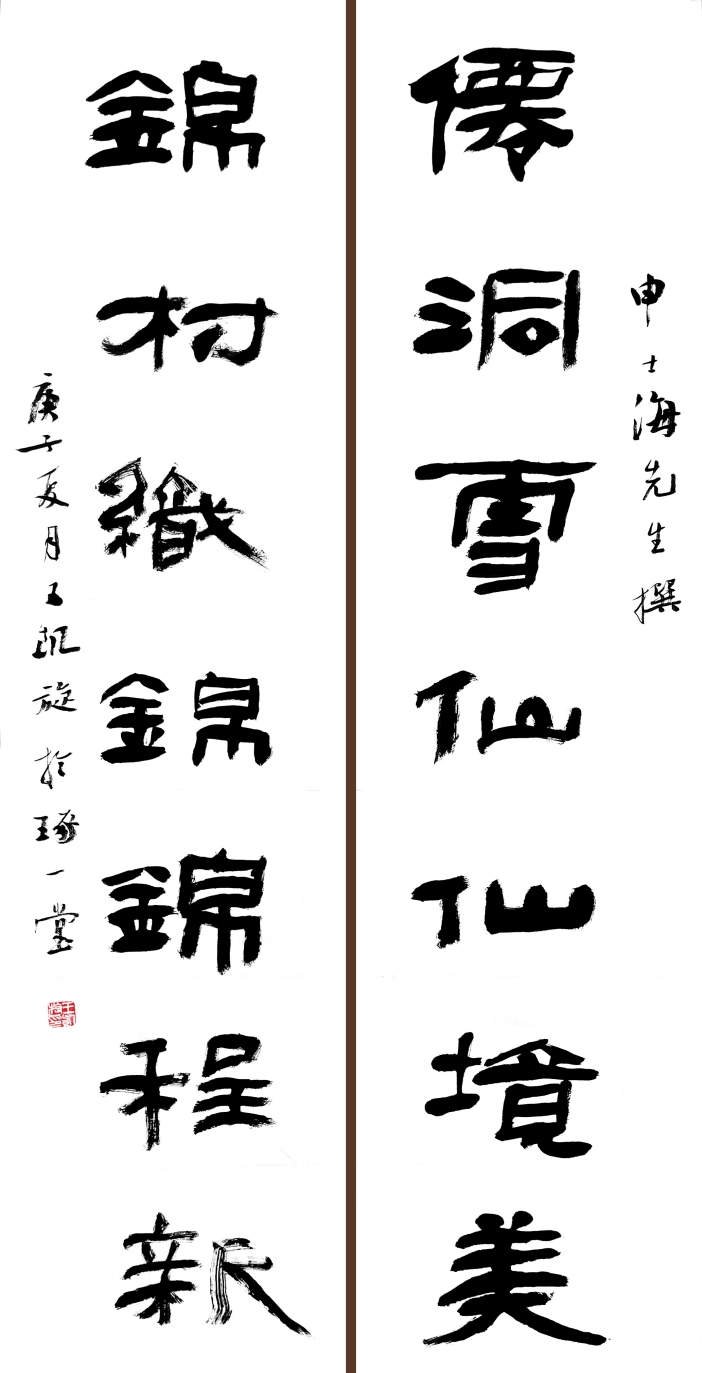 申士海先生撰
僊洞雪仙仙境美
錦村織錦錦程新
庚子夏月王凱旋於琢一堂